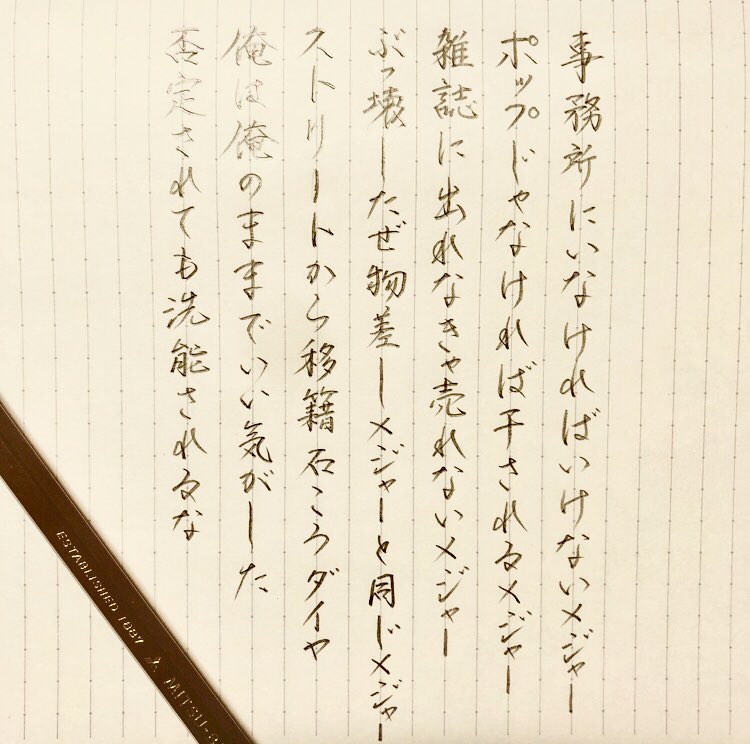 事務所にいなければいけないメジャー
ポップじゃなければ干されるメジャー
雑誌に出れなきゃ売れないメジャー
ぶっ壊したぜ物差しメジャーと同じメジャー
ストリートから移籍石ころダイヤ
俺は俺のままでいい気がした
否定されても洗脳されるな
ESTABLISHED 1887 MITSU-B